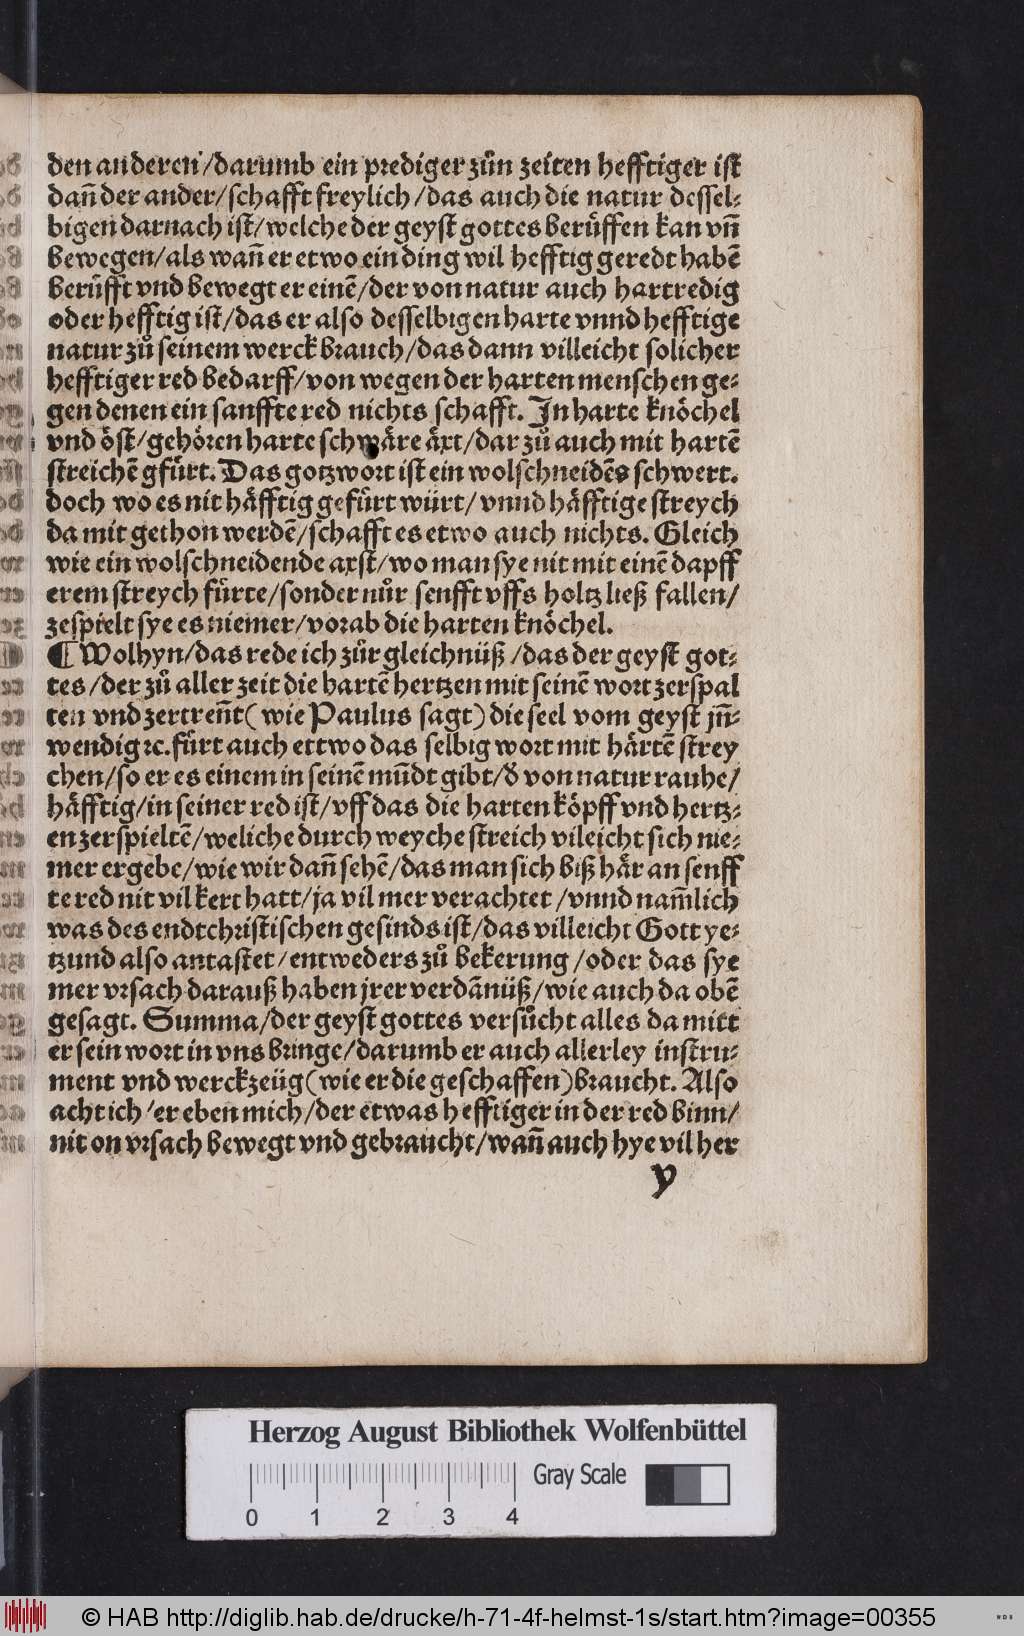 den anderen /darumb ein prediger zůn zeiten hefftiger ist
dañ der ander/schafft freylich /das auch die natur dessel⸗
bigen darnach ist/welche der geyst gottes berůffen kan vñ
bewegen/als wañ er etwo ein ding wil hefftig geredt habē
berůfft vnd bewegt er einē/der von natur auch hartredig
oder hefftig ist/das er also desselbigen harte vnnd hefftige
natur zů seinem werck brauch/das dann villeicht solicher
hefftiger red bedarff/von wegen der harten menschen ge⸗
gen denen ein sanffte red nichts schafft. In harte knöchel
vnd öst/gehören harte schwäre äxt/dar zů auch mit hartē
streichē gfürt. Das gotzwort ist ein wolschneidēs schwert.
doch wo es nit häfftig gefürt würt/ vnnd häfftige streych
da mit gethon werdē/schafft es etwo auch nichts. Gleich
wie ein wolschneidende axst/wo man sye nit mit einē dapff
erem streych fürte/sonder nůr senfft vffs holtz ließ fallen/
zespielt sye es niemer/vorab die harten knöchel.
¶ Wolhyn/das rede ich zůr gleichnüß /das der geyst got⸗
tes /der zů aller zeit die hartē hertzen mit seinē wort zerspal
ten vnd zertreñt( wie Paulus sagt) die seel vom geyst jñ⸗
wendig ꝛc. fürt auch ettwo das selbig wort mit härtē strey
chen/so er es einem in seinē mūdt gibt/d̕ von natur rauhe/
häfftig/in seiner red ist/vff das die harten köpff vnd hertz⸗
en zerspieltē/weliche durch weyche streich vileicht sich nie⸗
mer ergebē/wie wir dañ sehē/das man sich biß här an senff
te red nit vil kert hatt/ja vil mer verachtet /vnnd nam̄lich
was des endtchristischen gesinds ist/das villeicht Gott ye⸗
tzund also antastet/entweders zů bekerung /oder das sye
mer vrsach darauß haben jrer verdānüß/wie auch da obē
gesagt. Summa/der geyst gottes versůcht alles da mitt
er sein wort in vns bringe/darumb er auch allerley instru⸗
ment vnd werckzeüg(wie er die geschaffen)braucht. Also
acht ich /er eben mich/der etwas hefftiger in der red binn/
nit on vrsach bewegt vnd gebraucht/wañ auch hye vil her
y
Herzog August Bibliothek Wolfenbüttel
Gray Scale
0 1 2 3 4
© HAB http://diglib.hab.de/drucke/h-71-4f-helmst-1s/start.htm?image=00355